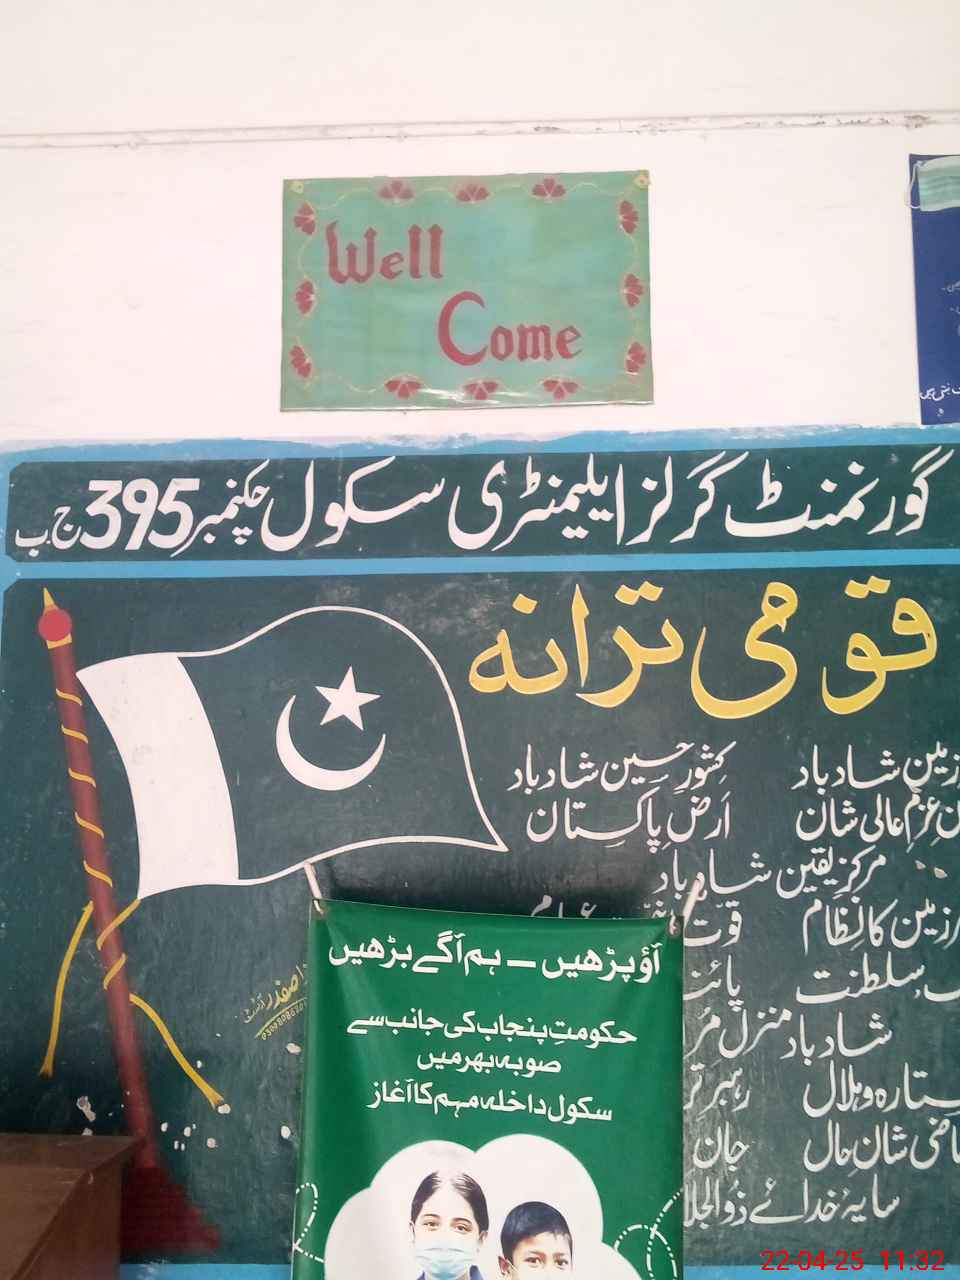 Well
Come
گورنمنٹ گرلز ایلیمنٹری سکول چکنمبر 395 ج ب
قومی ترانہ
شادباد کشورِ حسین شادباد
عزم عالی شان اَرضِ پاکستان
مرکزِ یقین شادباد
کا نظام قوت
سلطنت
شادباد منزل
ستارہ و ہلال رہبر
شانِ حال جان
سایۂ خدائے ذوالجلا
صفدر آرٹسٹ
آؤ پڑھیں – ہم آگے بڑھیں
حکومتِ پنجاب کی جانب سے
صوبہ بھر میں
سکول داخلہ مہم کا آغاز
22-04-25 11:32